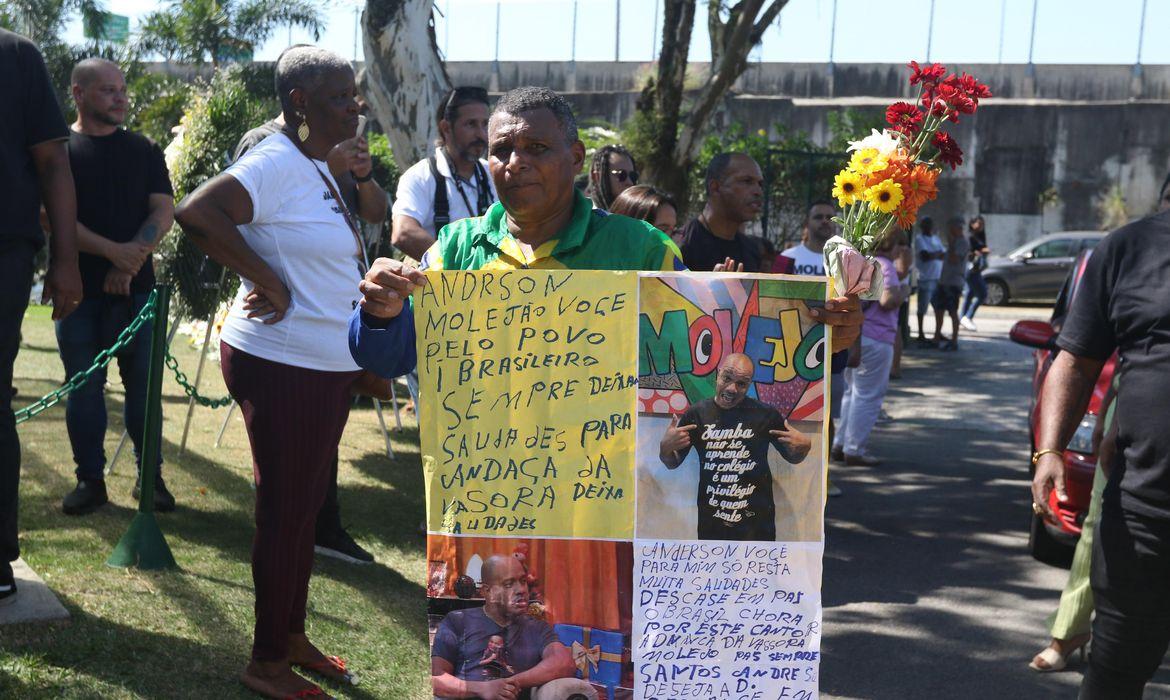 ANDRSON
MOLEJÃO VOCE
PELO POVO
BRASILEIRO
SEMPRE DEIXA
SAUDADES PARA
ANDAÇA DA
VASORA DEIXA
SAUDADES
MOLEJO
Samba
não se
aprende
no colégio
é um
privilégio
de quem
sente
ANDERSON VOCÊ
PARA MIM SÓ RESTA
MUITA SAUDADES
DESCASE EM PAS
O BRASIL CHORA
POR ESTE CANTOR
DA VASSORA
MOLEJO PAS SEMPRE
SANTOS ANDRE
DESEJA A D.
EM